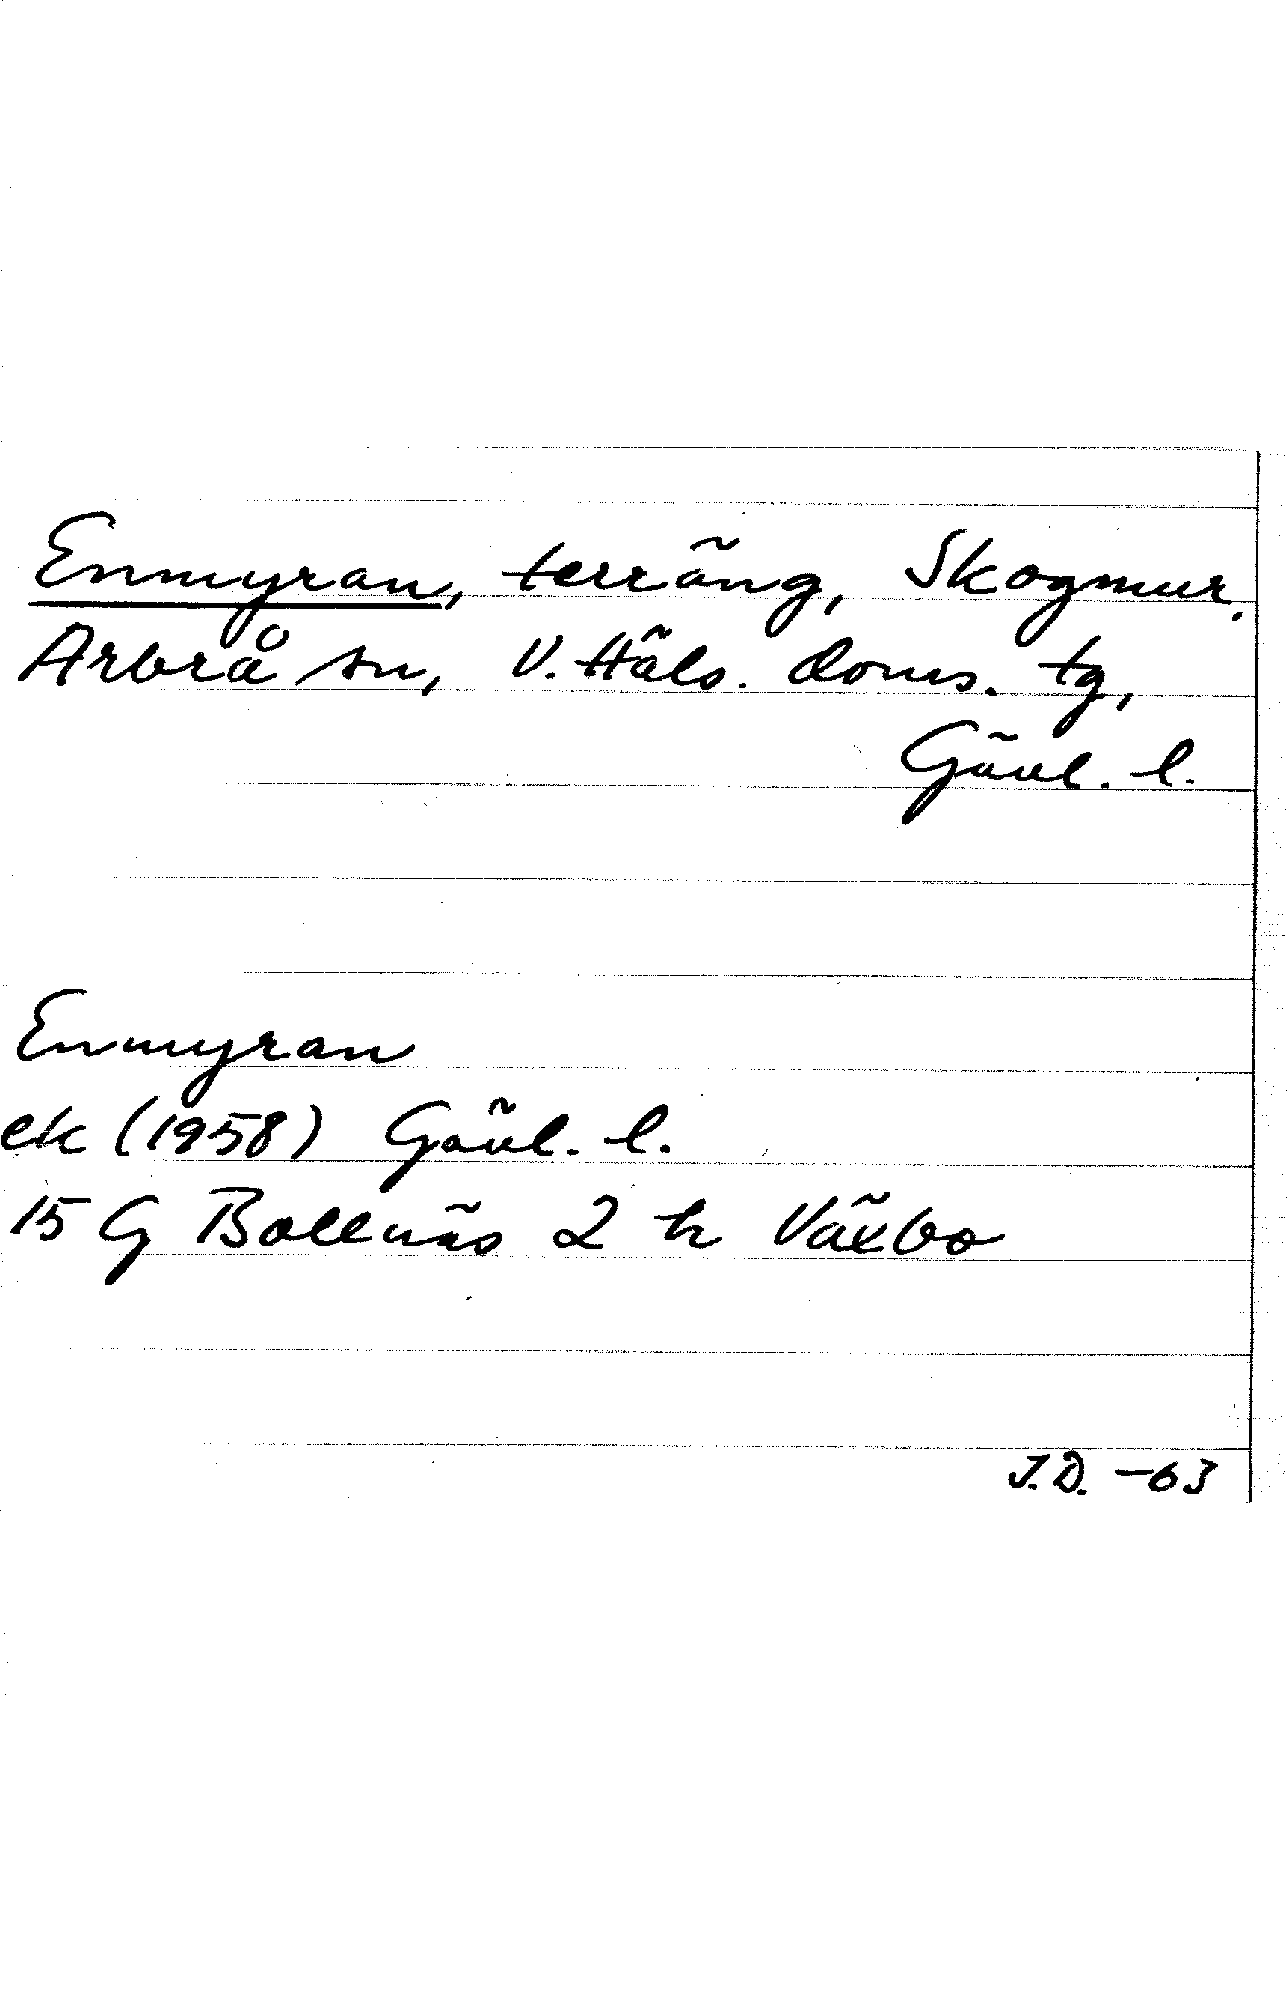 Enmyran, terräng, Skogmur.
Arbrå sn, V. Häls. doms. tg,
Gävl. l.
Enmyran
ek (1958) Gävl. l.
15 G Bollnäs 2 h Växbo
J.D. -63